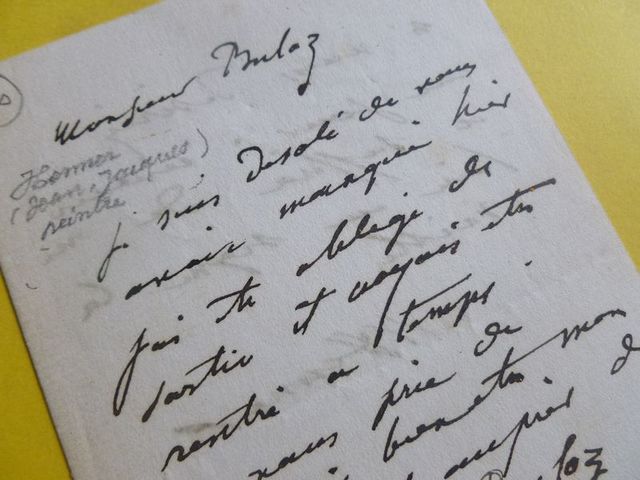 Monsieur Buloz
Henner
(Jean, Jacques)
peintre
je suis désolé de vous
avoir manqué hier
j'ai été obligé de
sortir et croyais être
rentré a temps.
vous prie de
bien être mon
auprès de
Buloz